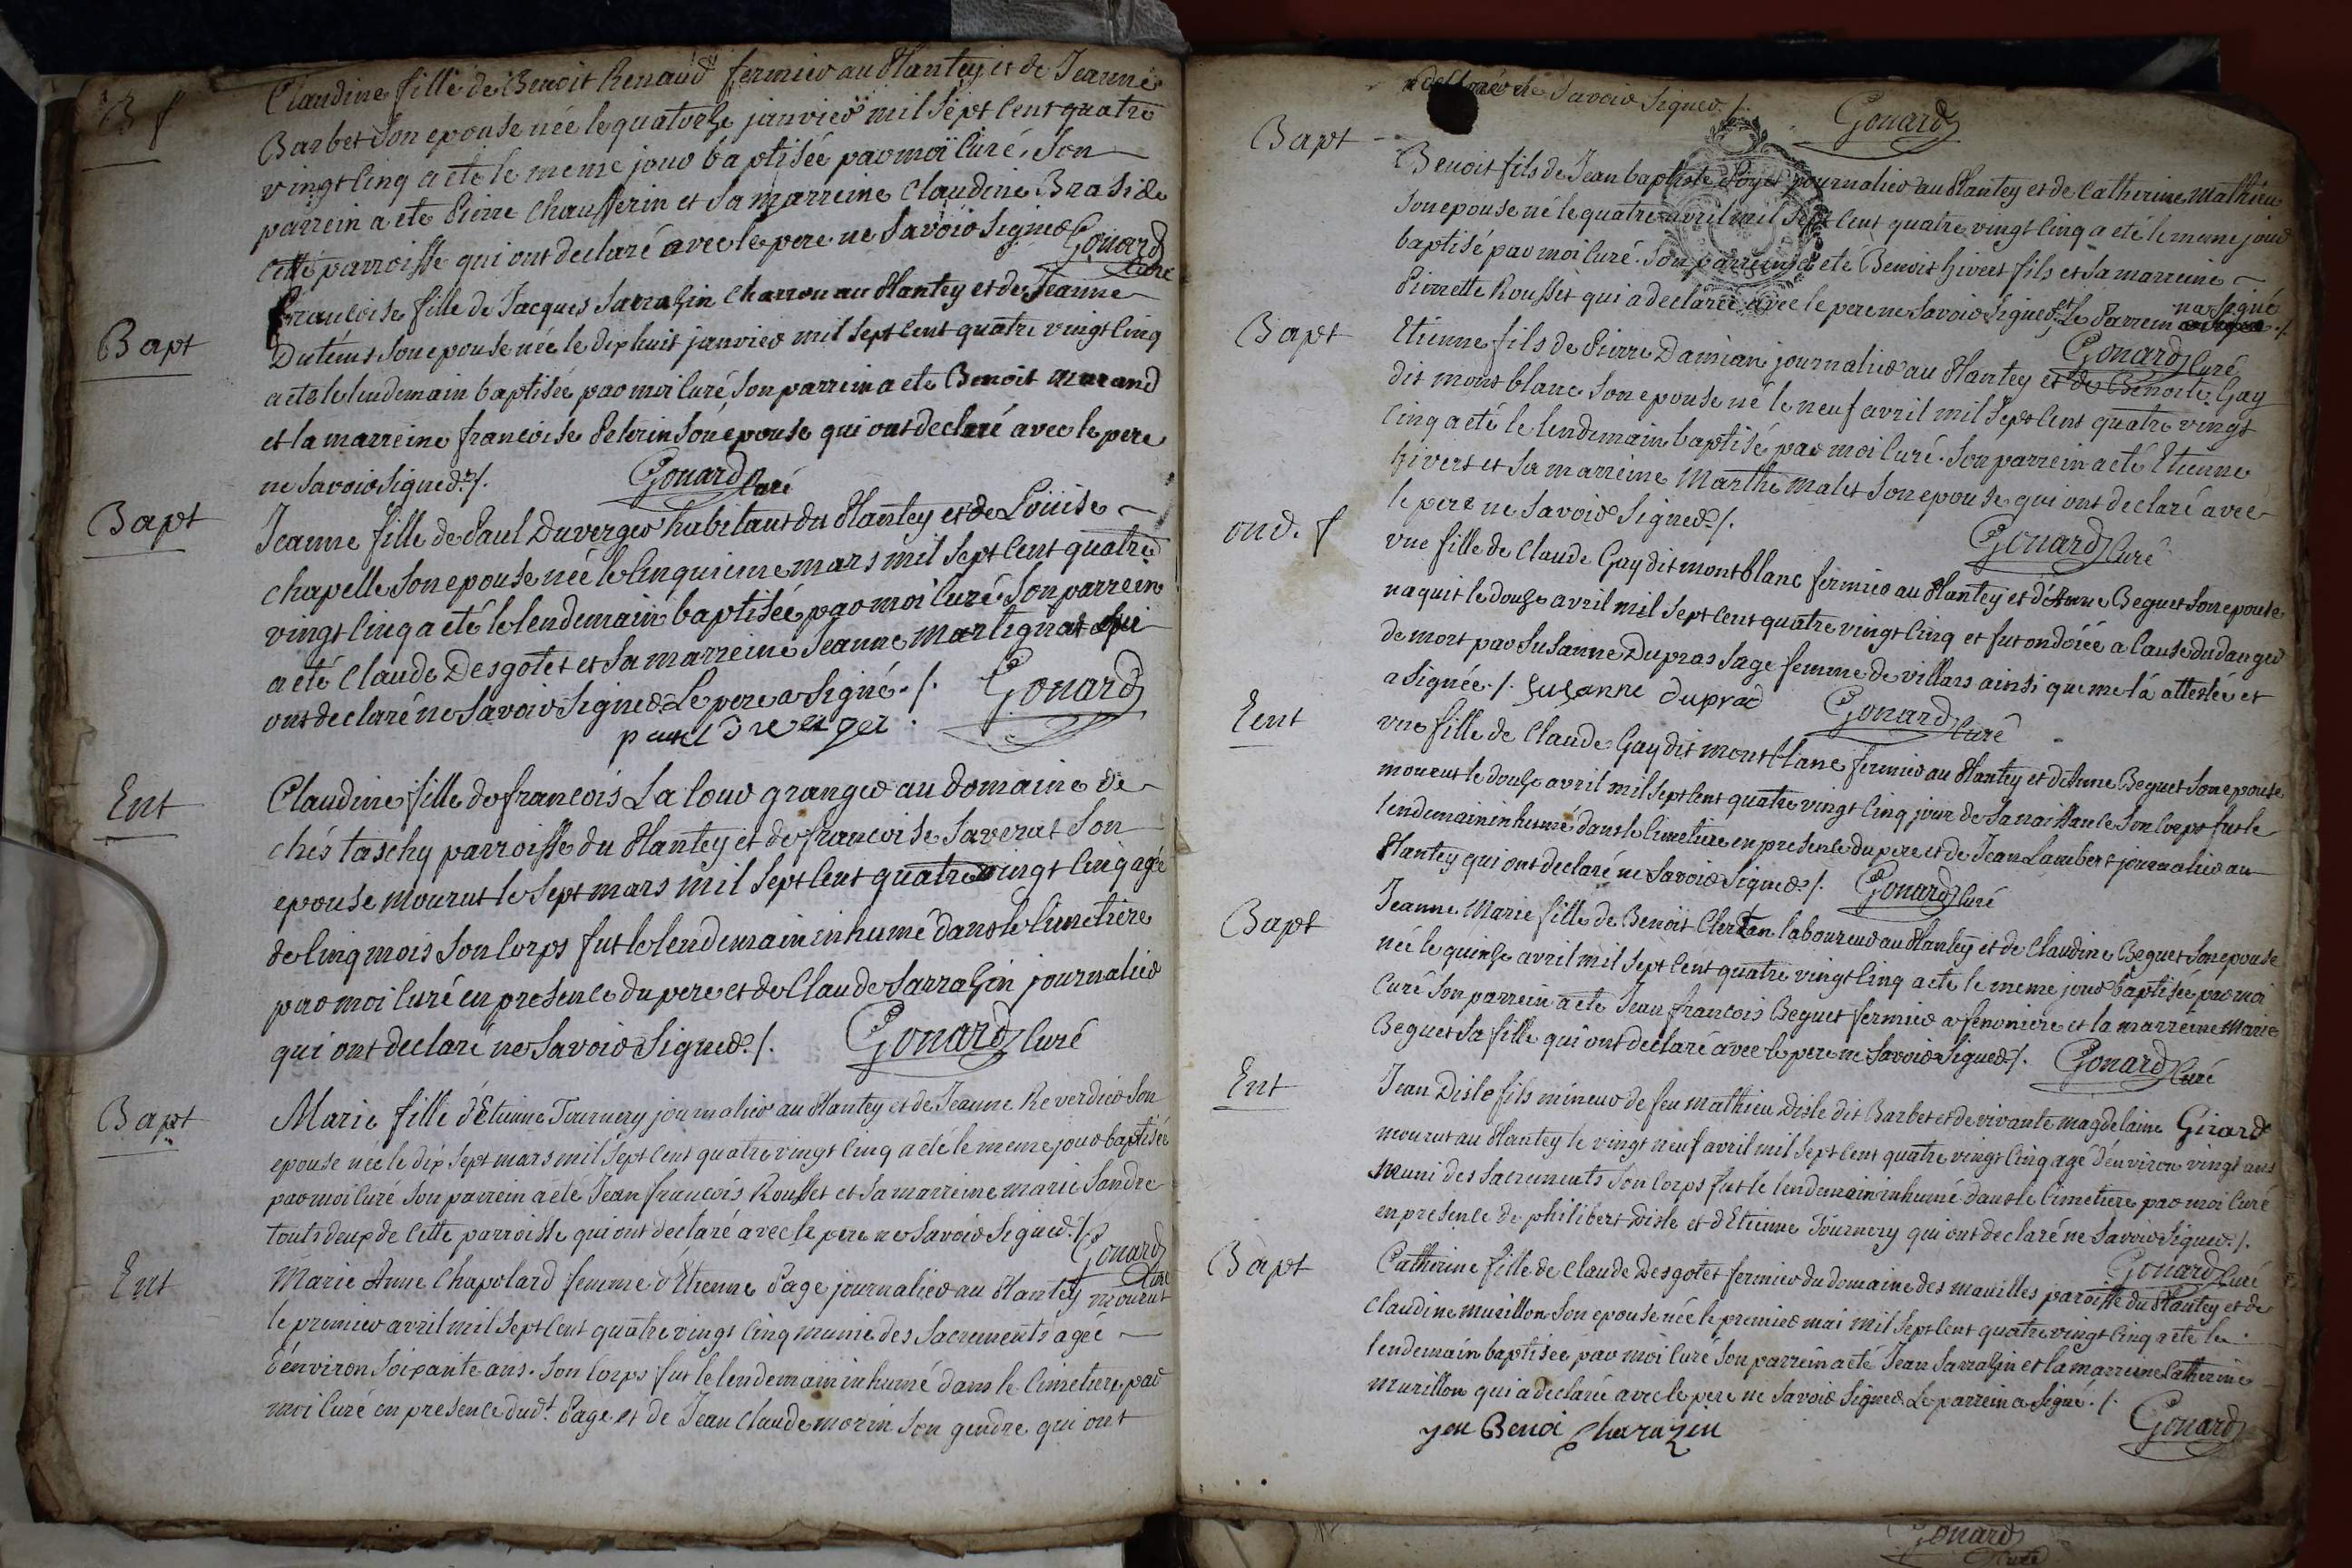 B f
Claudine fille de Benoit Renaud fermier au Plantey et de Jeanne
Barbet son epouse née le quatorze janvier mil sept cent quatre
vingt cinq a eté le meme jour baptisée par moi curé. Son
parrein a ete Pierre Chausserin et sa marreine Claudine
cette parroisse qui ont declaré avec le pere ne savoir signer Gonard
curé
Bapt
Francoise fille de Jacques Sarrazin charron au Plantey et de Jeanne
Duteus son epouse née le dix huit janvier mil sept cent quatre vingt cinq
a ete le lendemain baptisée par moi curé, son parrein a ete Benoit Murand
et la marreine francoise Pelerin son epouse qui ont declaré avec le pere
ne savoir signer ./. Gonard curé
Bapt
Jeanne fille de Paul Duverger habitant du Plantey et de Loüise
chapelle son epouse née le cinquieme mars mil sept cent quatre
vingt cinq a eté le lendemain baptisée par moi curé. Son parrein
a eté Claude Desgotet et sa marreine Jeanne Martignat qui
ont declaré ne savoir signer. Le pere a signé ./. Gonard
Ent
Claudine fille de francois La lour granger au domaine de
chés taschy parroisse du Plantey et de francoise Saverat son
epouse mourut le sept mars mil sept cent quatre vingt cinq agée
de cinq mois son corps fut le lendemain inhumé dans le cimetiere
par moi curé en presence du pere et de Claude Sarrazin journalier
qui ont declaré ne savoir signer ./. Gonard curé
Bapt
Marie fille d'Etienne Tournery journalier au Plantey et de Jeanne Reverdier son
epouse née le dix sept mars mil sept cent quatre vingt cinq a eté le meme jour baptisée
par moi curé son parrein a eté Jean francois Rousset et sa marreine marie Sandre
touts deux de cette parroisse qui ont declaré avec le pere ne savoir signer ./. Gonard
curé
Ent
Marie Anne Chapolard femme d'Etienne Page journalier au Plantey mourut
le premier avril mil sept cent quatre vingt cinq munie des sacrements agée
d'environ soixante ans. Son corps fut le lendemain inhumé dans le cimetiere par
moi curé en presence dudt Page et de Jean Claude morin son gendre qui ont
declaré ne savoir signer ./. Gonard
Bapt
Benoit fils de Jean baptiste journalier au Plantey et de Catherine Mathieu
son epouse né le quatre avril mil sept cent quatre vingt cinq a eté le meme jour
baptisé par moi curé. Son parrein a eté Benoit hivert fils et sa marreine
Pierrette Rousset qui a declarée avec le pere ne savoir signer et Le Parrein n'a signé ./.
Gonard curé
Bapt
Etienne fils de Pierre Damian journalier au Plantey et de Benoite Gay
dit mont blanc son epouse né le neuf avril mil sept cent quatre vingt
cinq a eté le lendemain baptisé par moi curé. Son parrein a eté Etienne
hivert et sa marreine Marthe malet son epouse qui ont declaré avec
le pere ne savoir signer ./. Gonard curé
ond. f
une fille de Claude Gay dit montblanc fermier au Plantey et d'Anne Beguet son epouse
naquit le douze avril mil sept cent quatre vingt cinq et fut ondoïée a cause du danger
de mort par Susanne Dupras sage femme de villars ainsi que me l'a attestée et
a signée ./. suzanne duprad Gonard curé
Eent
une fille de Claude Gay dit mont blanc fermier au Plantey et d'Anne Beguet son epouse
mourut le douze avril mil sept cent quatre vingt cinq jour de sa naissance son corps fut le
lendemain inhumé dans le cimetiere en presence du pere et de Jean Lambert journalier au
Plantey qui ont declaré ne savoir signer ./. Gonard curé
Bapt
Jeanne Marie fille de Benoit laboureur au Plantey et de Claudine Beguet son epouse
née le quinze avril mil sept cent quatre vingt cinq a ete le meme jour baptisée par moi
curé son parrein a ete Jean francois Beguet fermier a fenoniere et la marreine Marie
Beguet sa fille qui ont declaré avec le pere ne savoir signer ./. Gonard curé
Ent
Jean Disle fils mineur de feu Mathieu Disle dit Barbet et de vivante magdelaine Girard
mourut au Plantey le vingt neuf avril mil sept cent quatre vingt cinq agé d'environ vingt ans
muni des sacrements son corps fut le lendemain inhumé dans le cimetiere par moi curé
en presence de philibert Disle et d'Etienne Tournery qui ont declaré ne savoir signer ./.
Gonard curé
Bapt
Catherine fille de Claude Desgotet fermier du domaine des mauilles paroisse du Plantey et de
Claudine murillon son epouse née le premier mai mil sept cent quatre vingt cinq a eté le
lendemain baptisée par moi curé son parrein a eté Jean Sarrazin et la marreine Catherine
murillon qui a declaré avec le pere ne savoir signer. Le parrein a signé ./.
Gonard
Gonard
curé